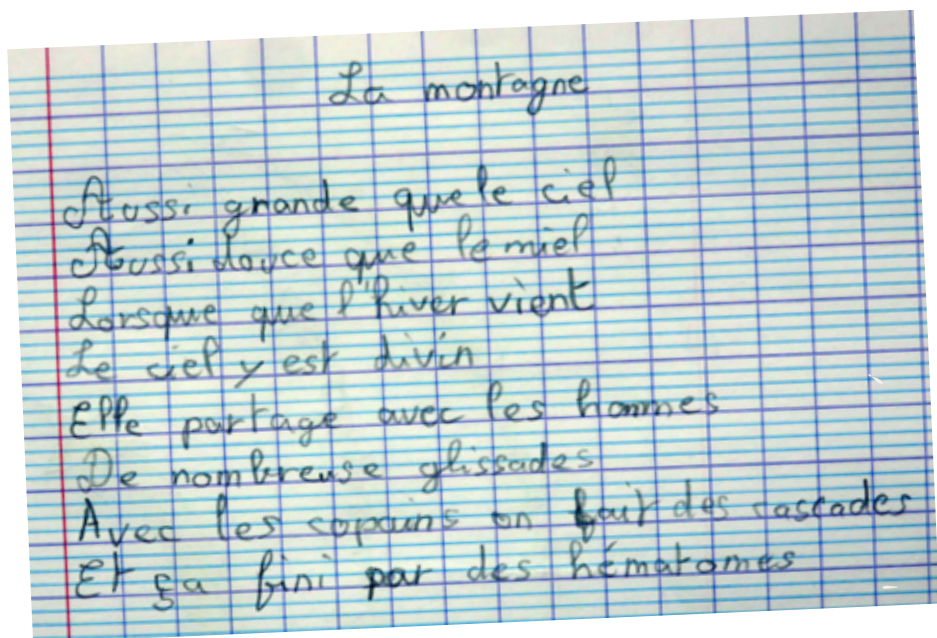 La montagne
Aussi grande que le ciel
Aussi douce que le miel
Lorsque que l'hiver vient
Le ciel y est divin
Elle partage avec les hommes
De nombreuse glissades
Avec les copains on fait des cascades
Et ça fini par des hématomes